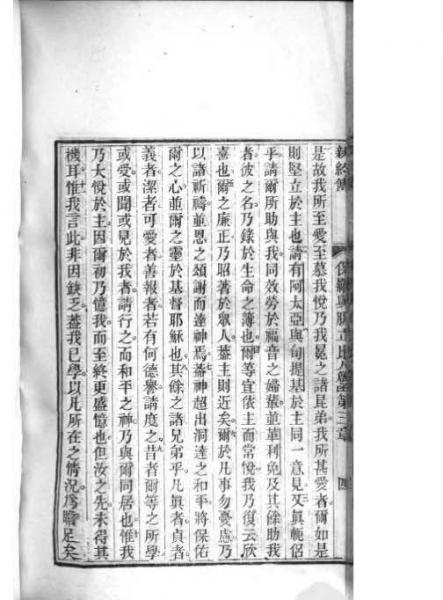 保羅與腓立比人書第三章 四
是故我所至愛至慕我悅乃我冕之諸昆弟我所甚愛者爾如是
則堅立於主也請有阿太亞與旬提基於主同一意見又眞軛侶
乎請爾所助與我同效勞於福音之婦輩並革利免及其餘助我
者彼之名乃錄於生命之簿也爾等宜依主而常悅我乃復云欣
喜也爾之廉正乃昭著於衆人蓋主則近矣爾於凡事勿憂慮乃
以諸祈禱並恩之頌謝而達神焉蓋神超出洞達之和平將保佑
爾之心並爾之靈於基督耶穌也其餘之諸兄弟乎凡眞者貞者
義者潔者可愛者善報者若有何德譽請度之昔者爾等之所學
或受或聞或見於我者請行之而和平之神乃與爾同居也惟我
乃大悅於主因爾初乃憶我而至終更盛憶也但汝之先未得其
機耳惟我言此非因缺乏蓋我已學以凡所在之情況爲贍足矣